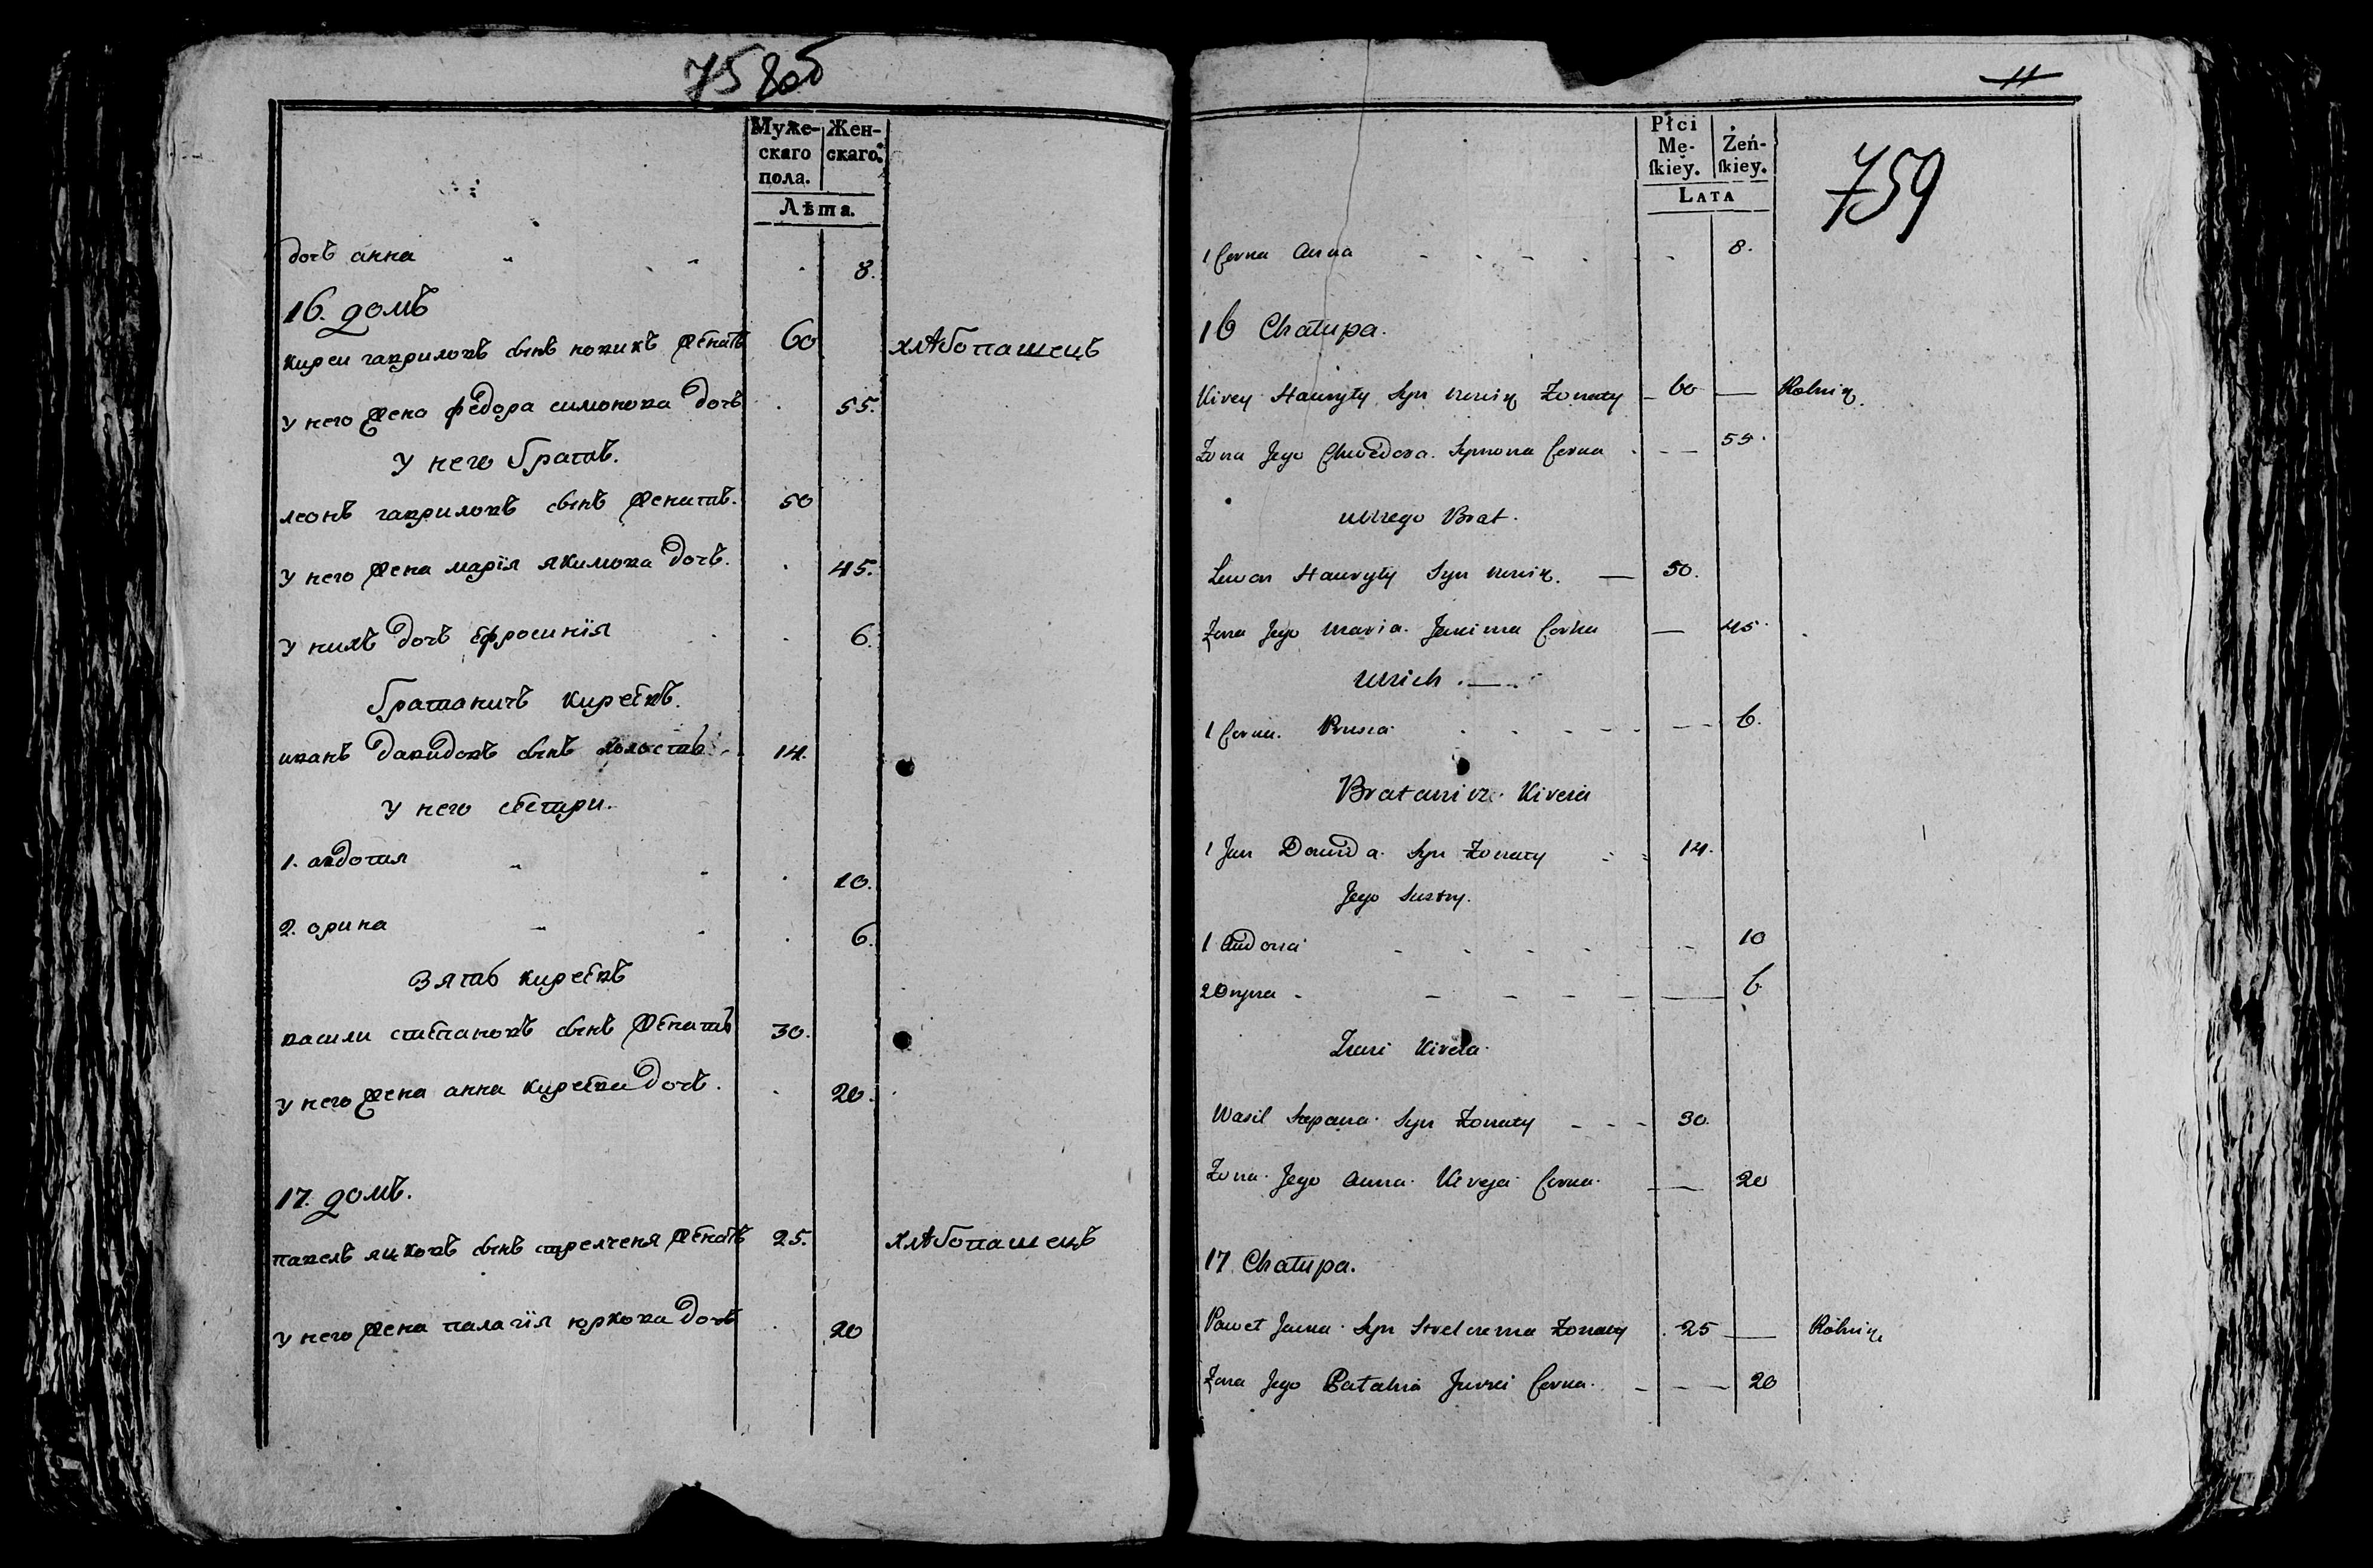 758об
Муже-
скаго
пола.
Жен-
скаго.
Лѣта.
дочъ анна 8.
16. домъ
Кирей гавриловъ сынъ новикъ женатъ 60 хлѣбопашецъ
у него жена федора симонова дочъ 55.
у него братъ.
леонъ гавриловъ сынъ женатъ. 50
у него жена марїя якимова дочъ. 45.
у нихъ дочъ ефросинїя 6.
братаничъ киреевъ.
иванъ давидовъ сынъ холостъ 14.
у него сестри.
1. авдотия 10.
2. орина 6.
зять киреевъ
васили степановъ сынъ женатъ 30.
у него жена анна киреева дочъ. 20.
17. домъ.
павелъ яцковъ сынъ стрелченя женатъ 25. хлѣбопашецъ
у него жена палагїя юркова дочъ 20
11
Płci
Mę-
ſkiey.
Żeń-
ſkiey.
LATA
759
1 Corka Anna 8.
16 Chałupa.
Kirey Hawryły Syn Żonaty 60 Rolnik
Żona Jego Chwedora Symona Corka 55.
u niego Brat.
Lewon Hawryły Syn 50.
Żona Jego Maria Jakima Corka 45.
u nich
1 Corka 6.
Bratanicz Kireia
1 Jan Dawida Syn Żonaty 14.
Jego Siostry.
1 Audocia 10
2 Oryna 6
Zięć Kireia
Wasil Stepana Syn Żonaty 30.
Żona Jego Anna Kireja Corka 20
17 Chałupa.
Paweł Jacka Syn Strelczenia Żonaty 25 Rolnik
Żona Jego Pałahia Jurki Corka 20